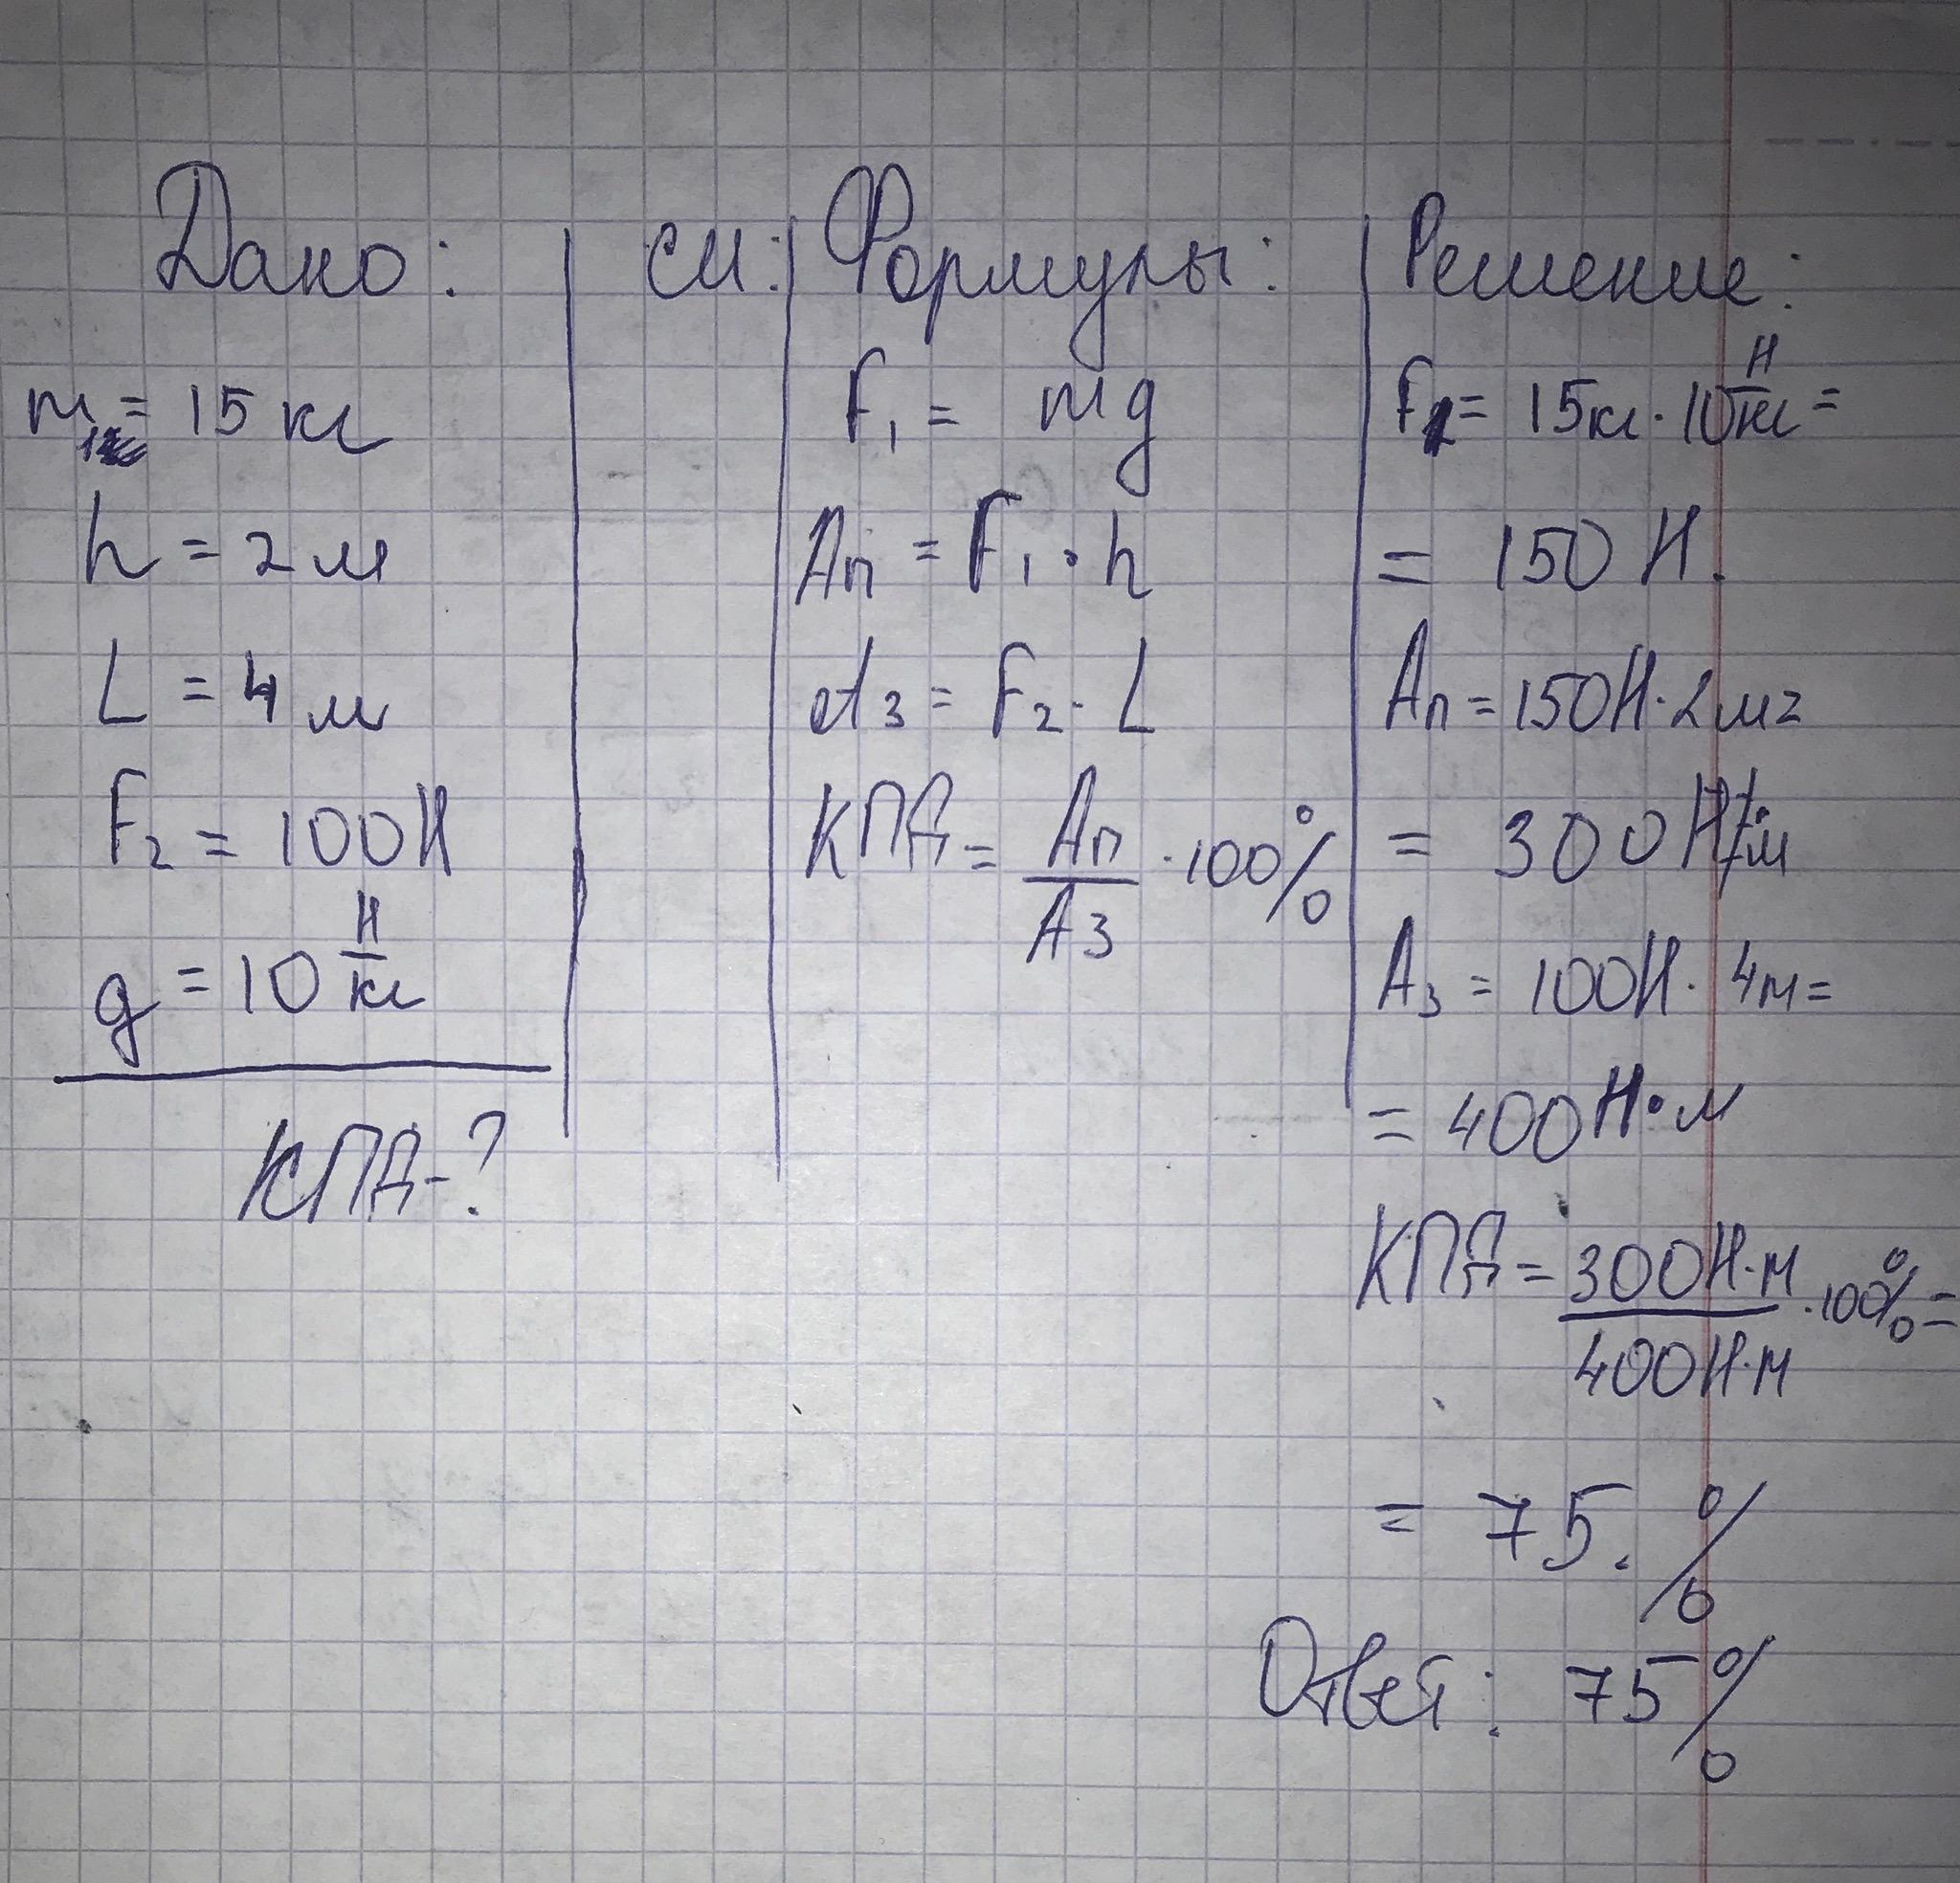 Дано:
m₁ = 15 кг
h = 2 м
L = 4 м
F₂ = 100 Н
g = 10 Н/кг
КПД - ?
СИ:
Формулы:
F₁ = mg
Aп = F₁ · h
Aз = F₂ · L
КПД = Aп/Aз · 100%
Решение:
F₁ = 15 кг · 10 Н/кг =
= 150 Н.
Aп = 150 Н · 2 м =
= 300 Н·м
Aз = 100 Н · 4 м =
= 400 Н·м
КПД = 300 Н·м/400 Н·м · 100% =
= 75. %
Ответ: 75%